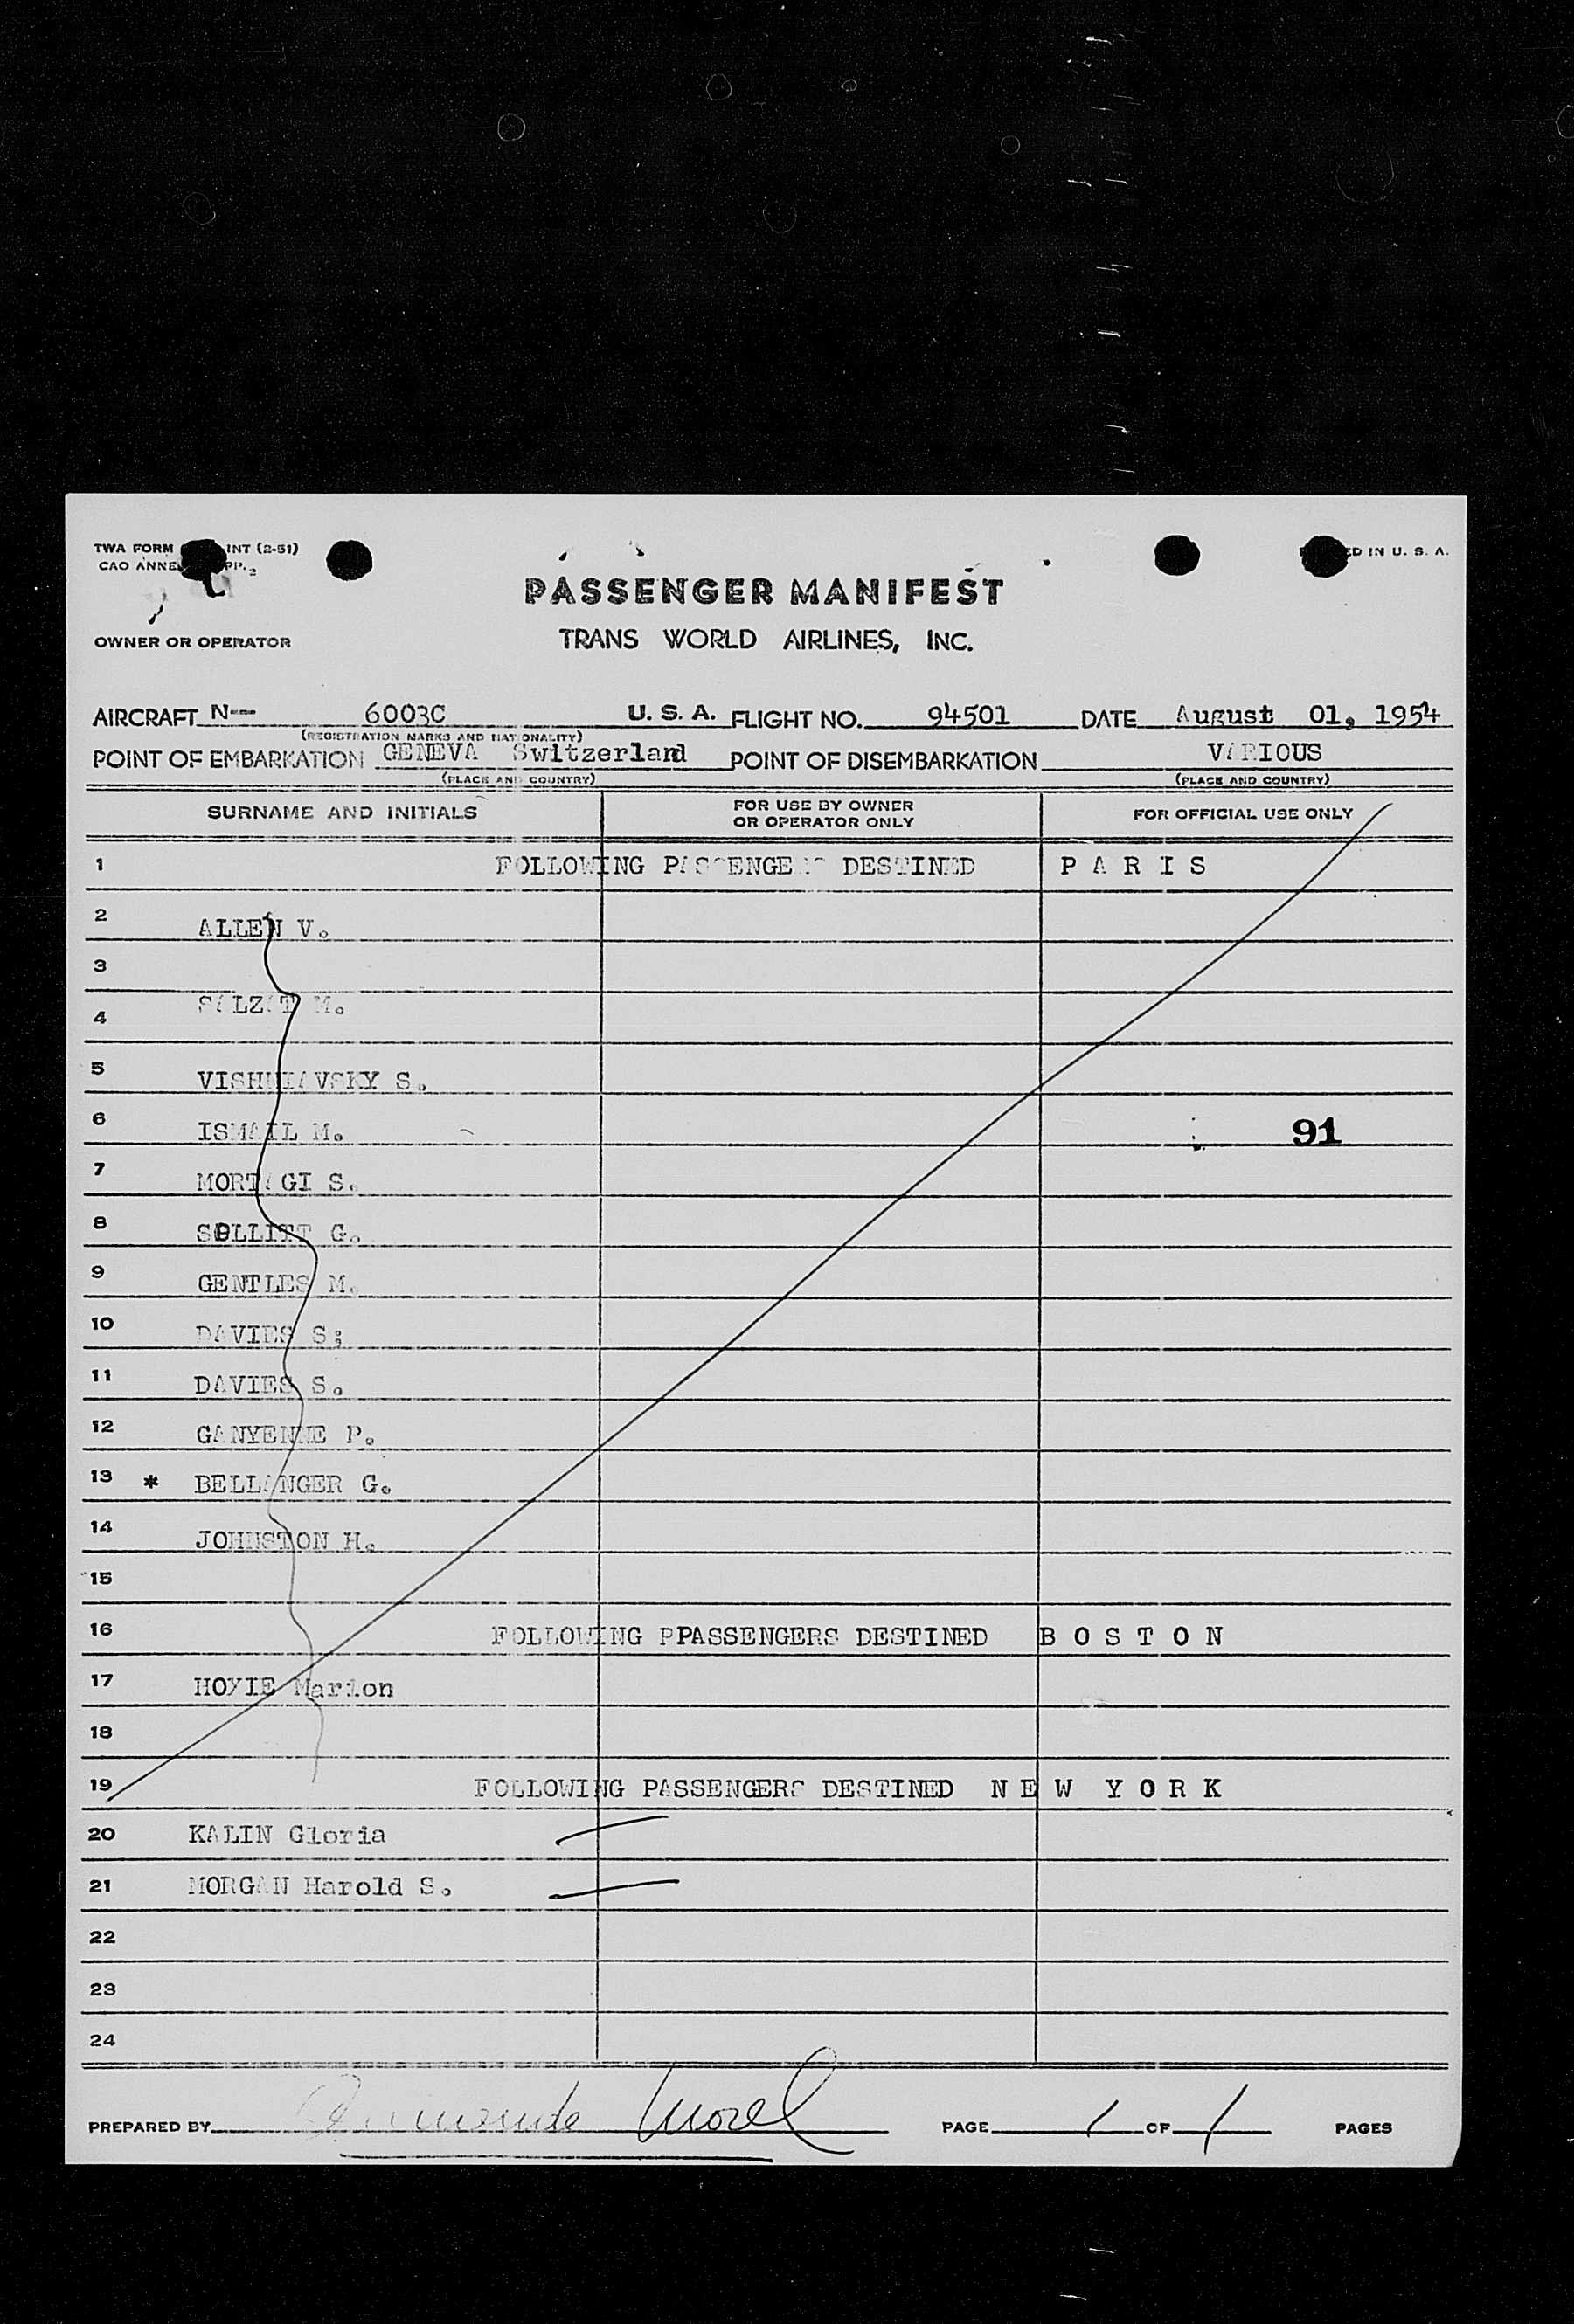 TWA FORM INT (2-51)
CAO ANNE PP. 2
ED IN U. S. A.
PASSENGER MANIFEST
OWNER OR OPERATOR TRANS WORLD AIRLINES, INC.
AIRCRAFT N— 6003C U. S. A. FLIGHT NO. 94501 DATE August 01, 1954
(REGISTRATION MARKS AND NATIONALITY)
POINT OF EMBARKATION GENEVA Switzerland POINT OF DISEMBARKATION VARIOUS
(PLACE AND COUNTRY) (PLACE AND COUNTRY)
SURNAME AND INITIALS FOR USE BY OWNER OR OPERATOR ONLY FOR OFFICIAL USE ONLY
1 FOLLOWING PASSENGERS DESTINED P A R I S
2 ALLEN V.
3
4 SALZAT M.
5 VISHNIAVSKY S.
6 ISMAIL M. 91
7 MORTAGI S.
8 G.
9 GENTLES M.
10 DAVIES S;
11 DAVIES S.
12 GANYENNE P.
13 * BELLANGER G.
14 JOHNSTON H.
15
16 FOLLOWING PPASSENGERS DESTINED B O S T O N
17 Marion
18
19 FOLLOWING PASSENGERS DESTINED N E W Y O R K
20 KALIN Gloria
21 MORGAN Harold S.
22
23
24
PREPARED BY Morel PAGE 1 OF 1 PAGES